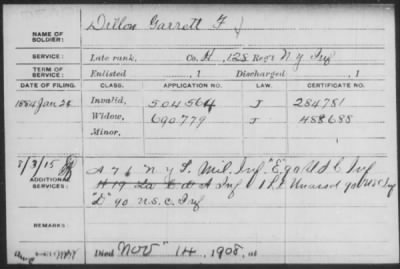 NAME OF SOLDIER: Dillon Garrett F
SERVICE: Late rank, Co. H, 128 Reg't N. Y. Inf
TERM OF SERVICE: Enlisted , 1 Discharged , 1
DATE OF FILING. CLASS. APPLICATION NO. LAW. CERTIFICATE NO.
1884 Jan 28 Invalid, 504564 J 284781
Widow, 690779 J 488688
Minor,
8/3/15
ADDITIONAL SERVICES: A 76 N Y S. Mil. Inf, "E" 90 U S C Inf
Inf Unassd 90 U S C Inf
"D" 90 U.S.C. Inf
REMARKS:
Died Nov 14, 1908, at